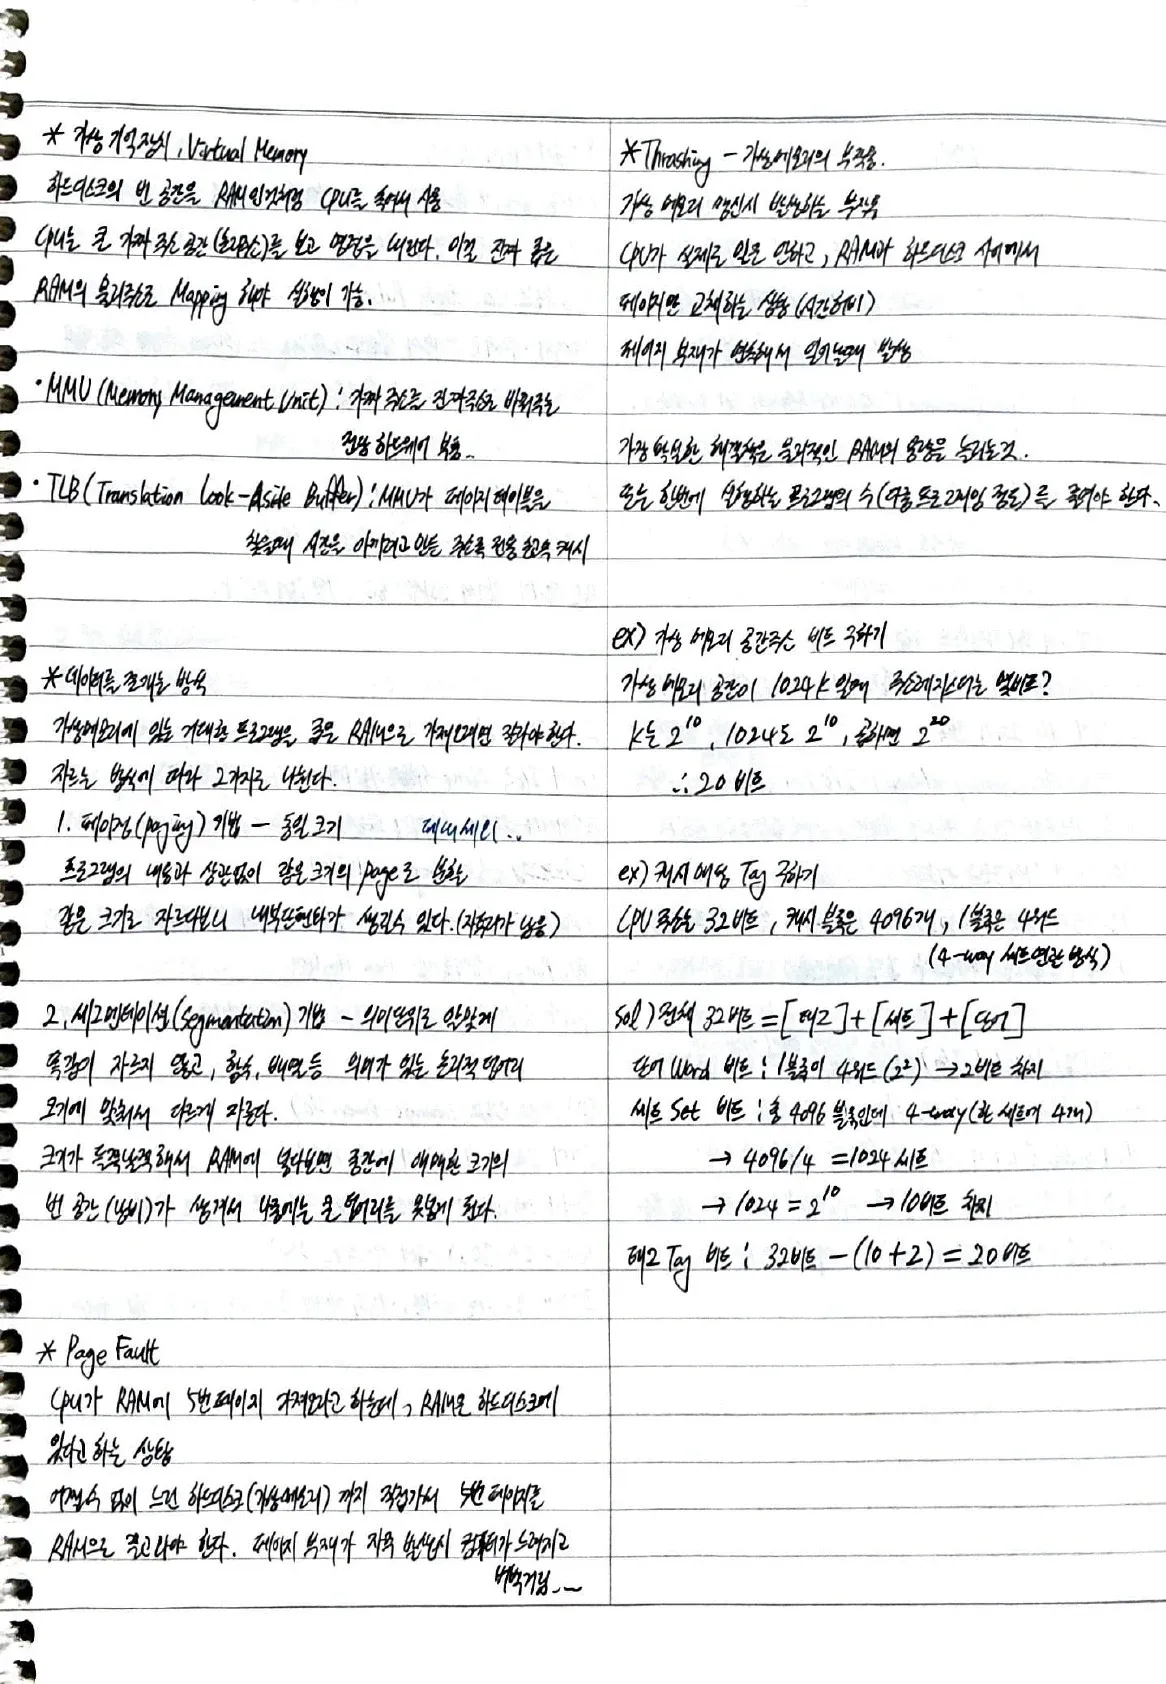 * 가상 기억장치, Virtual Memory
하드디스크의 빈 공간을 RAM인것처럼 CPU를 속여서 사용
CPU는 큰 가짜 주소 공간(논리주소)를 보고 명령을 내린다. 이걸 진짜 좁은
RAM의 물리주소로 Mapping 해야 실행이 가능.
· MMU (Memory Management Unit) : 가짜 주소를 진짜주소로 바꿔주는
전담 하드웨어 부품..
· TLB (Translation Look-Aside Buffer) : MMU가 페이지 테이블을
찾을때 시간을 아끼려고 만든 주소록 전용 초고속 캐시
* 데이터를 쪼개는 방식
가상메모리에 있는 거대한 프로그램을 좁은 RAM으로 가져오려면 잘라야 한다.
자르는 방식에 따라 2가지로 나뉜다.
1. 페이징(paging) 기법 - 동일 크기 페내세외..
프로그램의 내용과 상관없이 같은 크기의 page로 분할
같은 크기로 자르다보니 내부단편화가 생길수 있다.(자투리가 남음)
2. 세그멘테이션(Segmentation) 기법 - 의미단위로 알맞게
똑같이 자르지 않고, 함수, 배열 등 의미가 있는 논리적 덩어리
크기에 맞춰서 다르게 자른다.
크기가 들쭉날쭉해서 RAM에 넣다보면 중간에 애매한 크기의
빈 공간(낭비)가 생겨서 나중에는 큰 덩어리를 못넣게 된다.
* Page Fault
CPU가 RAM에 5번페이지 가져오라고 하는데, RAM은 하드디스크에
있다고 하는 상황
어쩔수 없이 느린 하드디스크(가상메모리) 까지 직접가서 5번 페이지를
RAM으로 끌고와야 한다. 페이지 부재가 자주 발생시 컴퓨터가 느려지고
버벅거림..
* Thrashing - 가상메모리의 부작용.
가상 메모리 갱신시 발생하는 부작용
CPU가 실제로 일은 안하고, RAM과 하드디스크 사이에서
페이지만 교체하는 상황 (시간허비)
페이지 부재가 연속해서 일어날때 발생
가장 확실한 해결책은 물리적인 RAM의 용량을 늘리는것.
또는 한번에 실행하는 프로그램의 수(다중 프로그래밍 정도)를 줄여야 한다.
ex) 가상 메모리 공간주소 비트 구하기
가상 메모리 공간이 1024K 일때 주소레지스터는 몇비트?
K는 2^10, 1024도 2^10, 곱하면 2^20
∴ 20 비트
ex) 캐시 매핑 Tag 구하기
CPU 주소는 32비트, 캐시 블록은 4096개, 1블록은 4워드
(4-way 세트연관 방식)
Sol) 전체 32비트 = [태그] + [세트] + [단어]
단어 Word 비트 : 1블록이 4워드 (2²) → 2비트 차지
세트 Set 비트 : 총 4096 블록인데 4-way (한 세트에 4개)
→ 4096/4 = 1024 세트
→ 1024 = 2^10 → 10비트 차지
태그 Tag 비트 : 32비트 - (10 + 2) = 20 비트